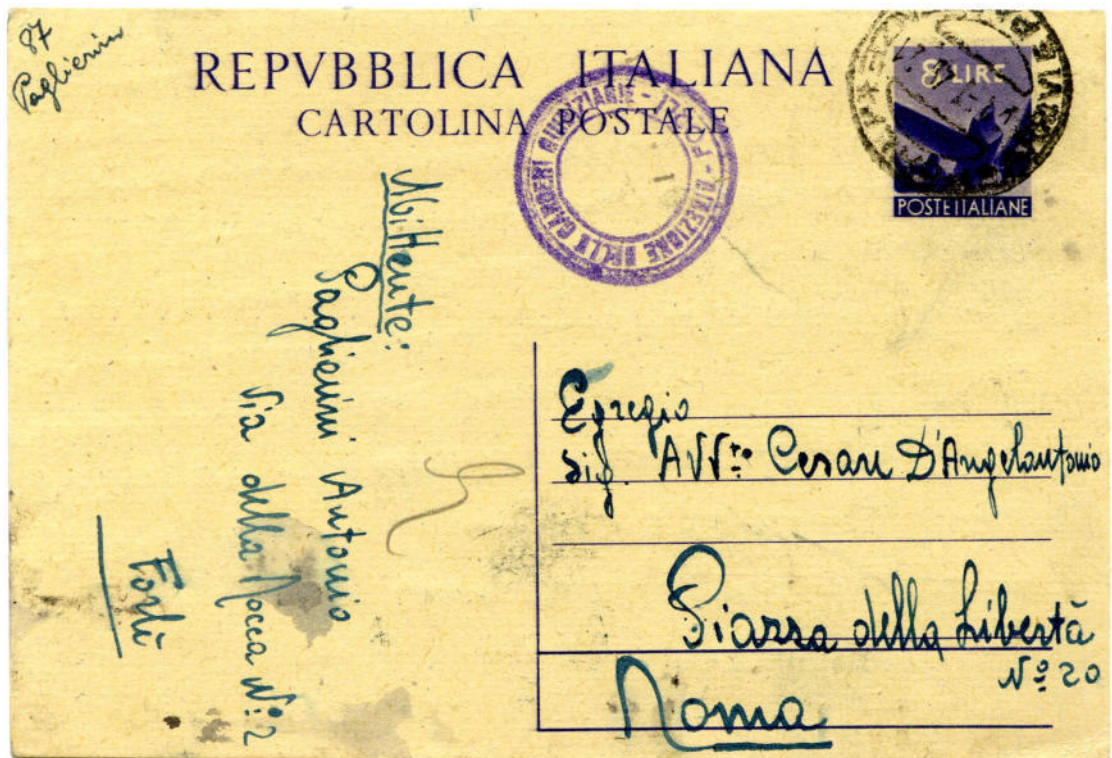 87
Paglierini
REPVBBLICA ITALIANA
CARTOLINA POSTALE
8 LIRE
POSTE ITALIANE
DIREZIONE DELLE CARCERI GIUDIZIARIE - FORLI -
Mittente:
Paglierini Antonio
Via della Rocca Nº 2
Forlì
Egregio
Sig. AVV.to Cesare D'Angelantonio
Piazza della Libertà
Nº 20
Roma